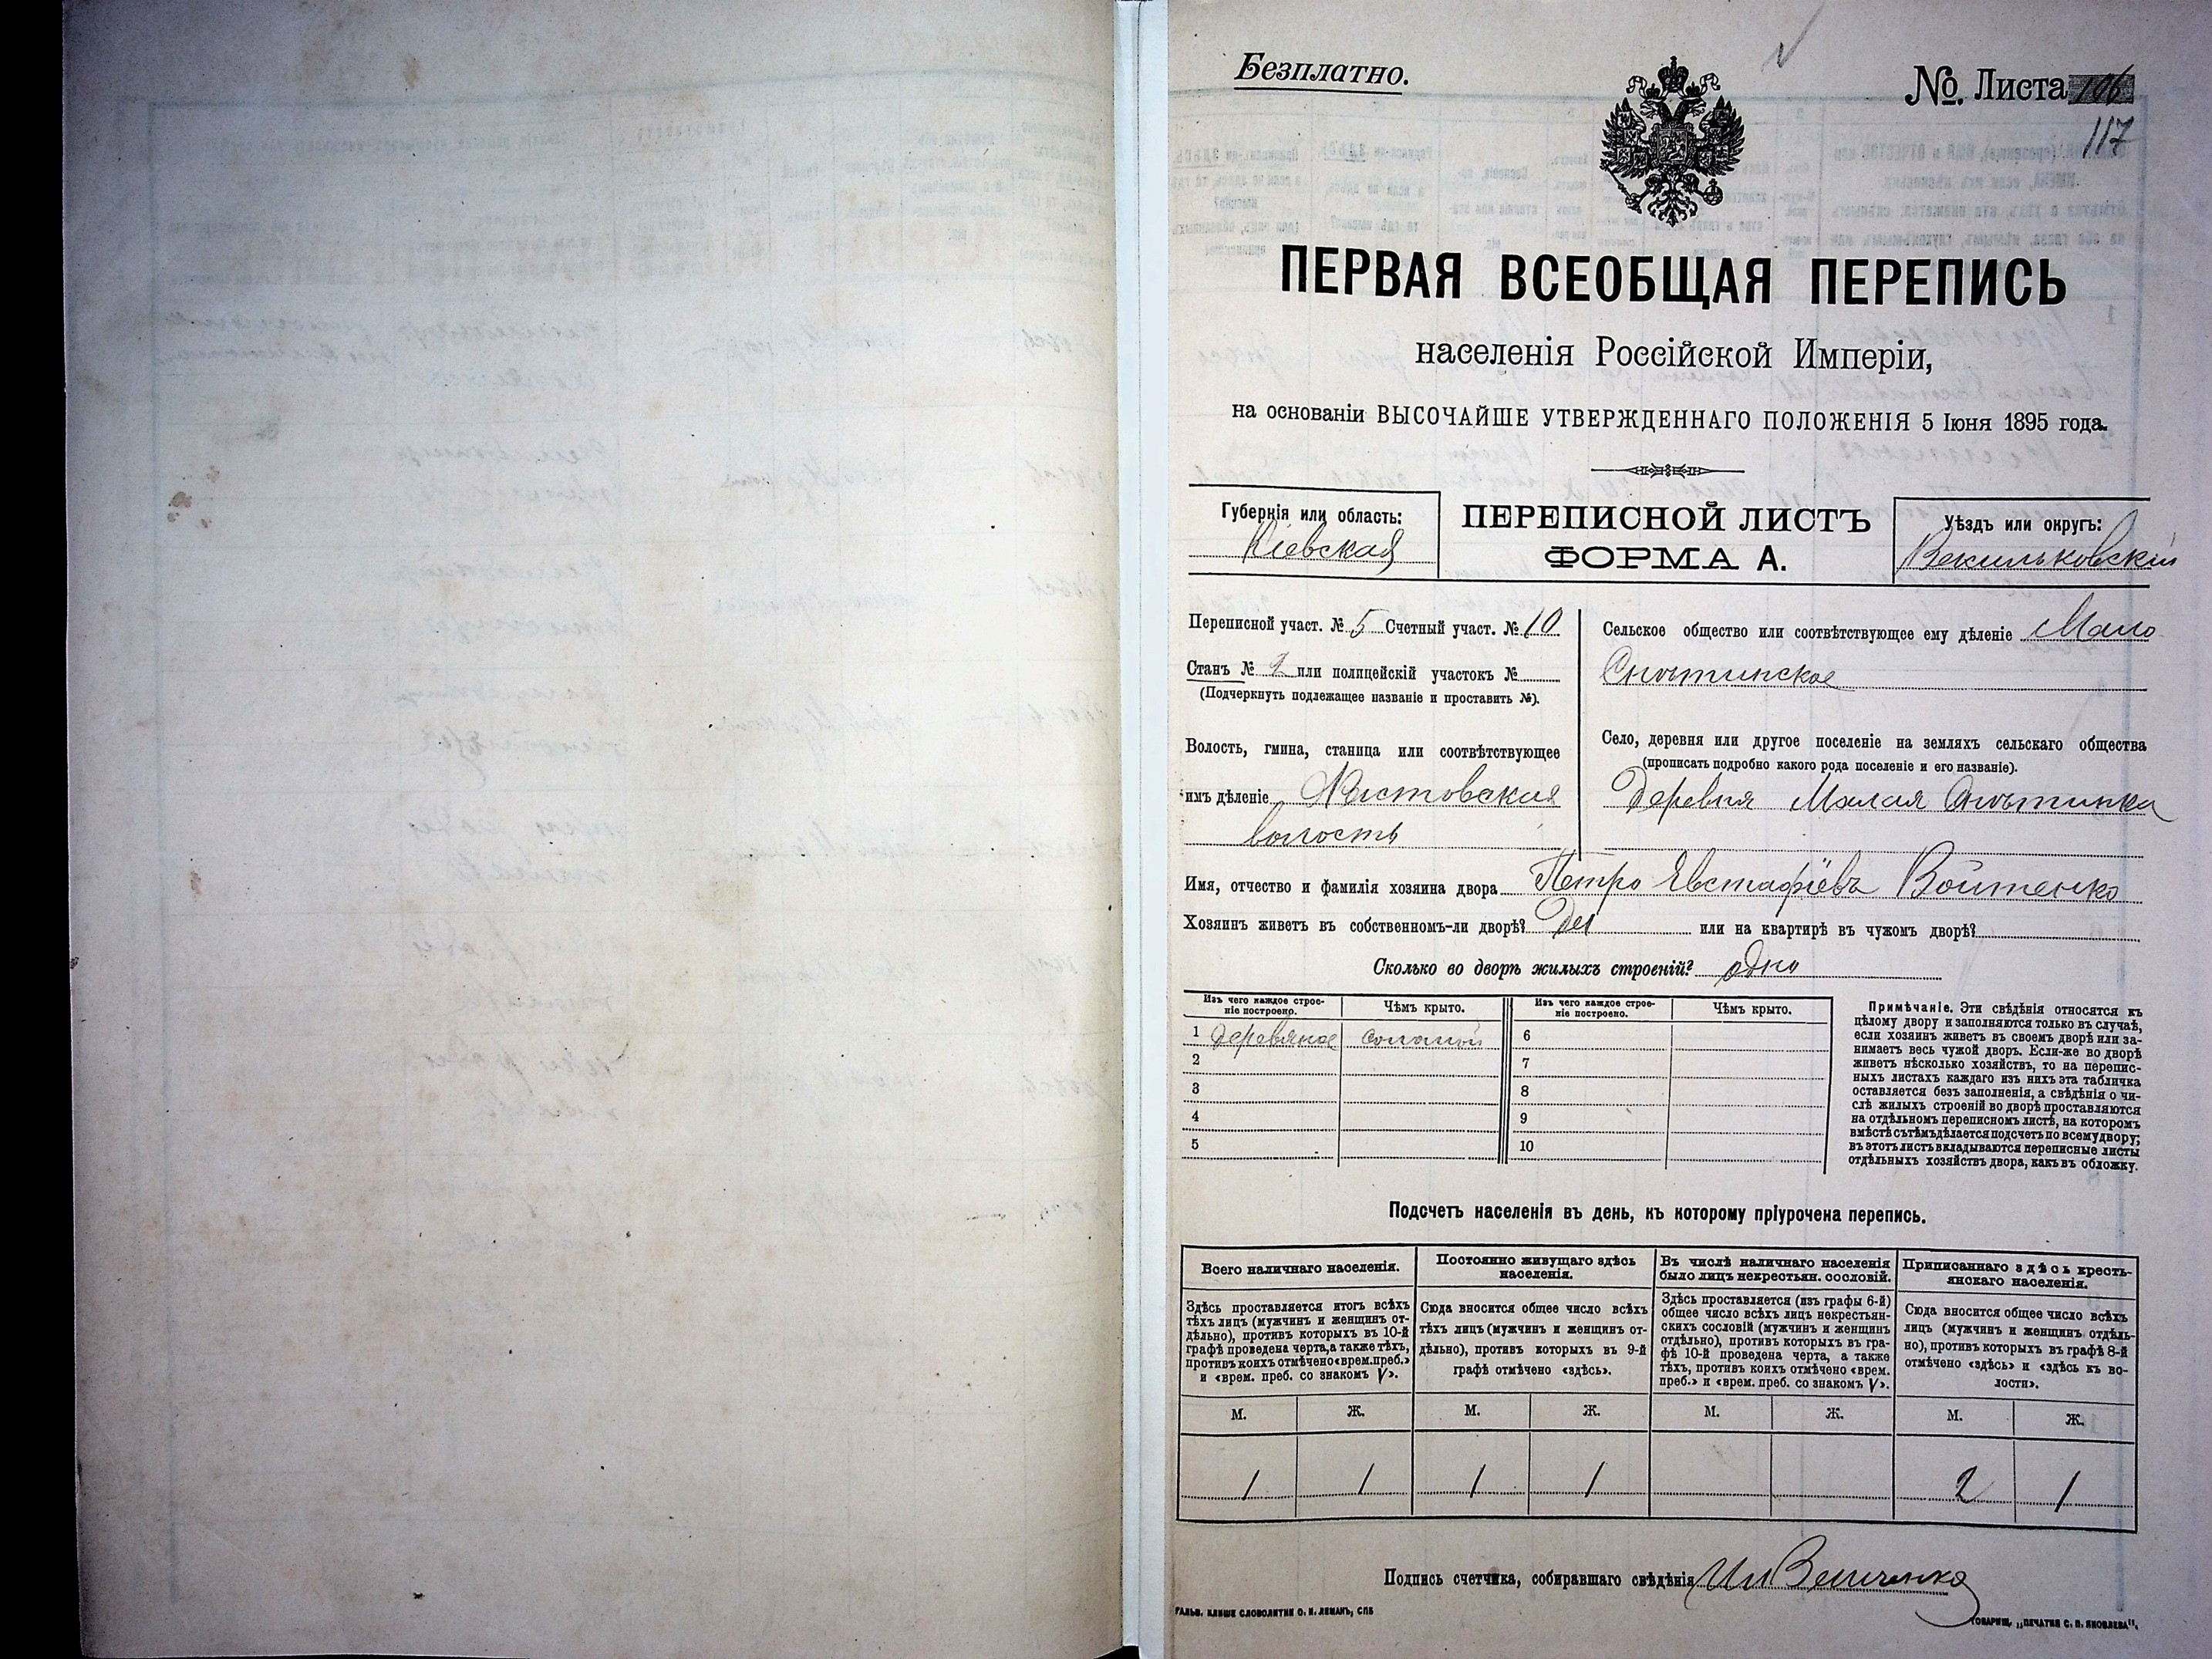 Безплатно.
№. Листа 106
117
ПЕРВАЯ ВСЕОБЩАЯ ПЕРЕПИСЬ
населенія Россійской Имперіи,
на основаніи ВЫСОЧАЙШЕ УТВЕРЖДЕННАГО ПОЛОЖЕНІЯ 5 Іюня 1895 года.
Губернія или область:
Кіевская
ПЕРЕПИСНОЙ ЛИСТЪ
ФОРМА А.
Уѣздъ или округъ:
Васильковскій
Переписной участ. № 5 Счетный участ. № 10
Станъ № 2 или полицейскій участокъ №
(Подчеркнуть подлежащее названіе и проставить №).
Волость, гмина, станица или соотвѣтствующее
имъ дѣленіе
волость
Сельское общество или соотвѣтствующее ему дѣленіе Мало
Снѣтинское
Село, деревня или другое поселеніе на земляхъ сельскаго общества
(прописать подробно какого рода поселеніе и его названіе).
Деревня Малая Снѣтинка
Имя, отчество и фамилія хозяина двора Петро Евстафіевъ Войтенко
Хозяинъ живетъ въ собственномъ-ли дворѣ? Да или на квартирѣ въ чужомъ дворѣ?
Сколько во дворѣ жилыхъ строеній? одно
Изъ чего каждое строе-
ніе построено.
Чѣмъ крыто.
Изъ чего каждое строе-
ніе построено.
Чѣмъ крыто.
1 деревяное соломой 6
2 7
3 8
4 9
5 10
Примѣчаніе. Эти свѣдѣнія относятся къ
цѣлому двору и заполняются только въ случаѣ,
если хозяин живетъ въ своемъ дворѣ или за-
нимаетъ весь чужой дворъ. Если-же во дворѣ
живетъ нѣсколько хозяйствъ, то на перепис-
ныхъ листахъ каждаго изъ нихъ эта табличка
оставляется безъ заполненія, а свѣдѣнія о чи-
слѣ жилыхъ строеній во дворѣ проставляются
на отдѣльномъ переписномъ листѣ, на которомъ
вмѣстѣ съ тѣмъ дѣлается подсчетъ по всему двору;
въ этотъ листъ вкладываются переписные листы
отдѣльныхъ хозяйствъ двора, какъ въ обложку.
Подсчетъ населенія въ день, къ которому пріурочена перепись.
Всего наличнаго населенія.
Постоянно живущаго здѣсь
населенія.
Въ числѣ наличнаго населенія
было лицъ некрестьян. сословій.
Приписаннаго здѣсь кресть-
янскаго населенія.
Здѣсь проставляется итогъ всѣхъ
тѣхъ лицъ (мужчин и женщинъ от-
дѣльно), противъ которыхъ въ 10-й
графѣ проведена черта, а также тѣхъ,
противъ коихъ отмѣчено «врем. преб.»
и «врем. преб. со знакомъ V».
Сюда вносится общее число всѣхъ
тѣхъ лицъ (мужчин и женщинъ от-
дѣльно), противъ которыхъ въ 9-й
графѣ отмѣчено «здѣсь».
Здѣсь проставляется (изъ графы 6-й)
общее число всѣхъ лицъ некрестьян-
скихъ сословій (мужчин и женщинъ
отдѣльно), противъ которыхъ въ гра-
фѣ 10-й проведена черта, а также
тѣхъ, противъ коихъ отмѣчено «врем.
преб.» и «врем. преб. со знакомъ V».
Сюда вносится общее число всѣхъ
лицъ (мужчин и женщинъ отдѣль-
но), противъ которыхъ въ графѣ 8-й
отмѣчено «здѣсь» и «здѣсь къ во-
лости».
М. Ж. М. Ж. М. Ж. М. Ж.
1 1 1 1 2 1
Подпись счетчика, собиравшаго свѣдѣнія
ГАЛЬВ. КЛИШЕ СЛОВОЛИТНИ О. И. ЛЕМАНЪ, СПБ
ТОВАРИЩ. „ПЕЧАТНЯ С. П. ЯКОВЛЕВА".